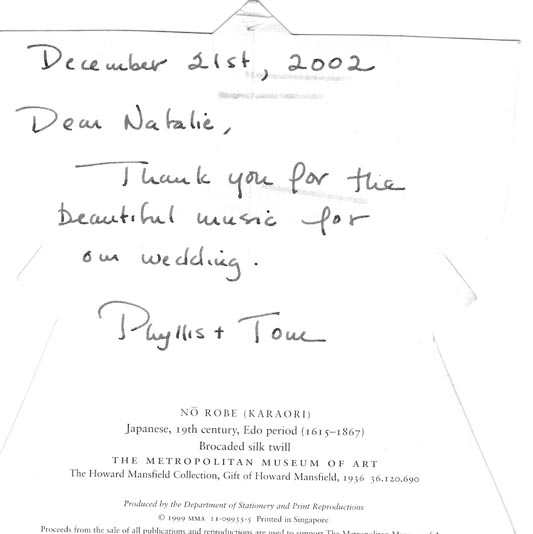 December 21st, 2002
Dear Natalie,
Thank you for the
beautiful music for
our wedding.
Phyllis + Tom
NŌ ROBE (KARAORI)
Japanese, 19th century, Edo period (1615–1867)
Brocaded silk twill
THE METROPOLITAN MUSEUM OF ART
The Howard Mansfield Collection, Gift of Howard Mansfield, 1936 36.120.690
Produced by the Department of Stationery and Print Reproductions
© 1999 MMA 11-09935-5 Printed in Singapore
Proceeds from the sale of all publications and reproductions are used to support The Metropolitan